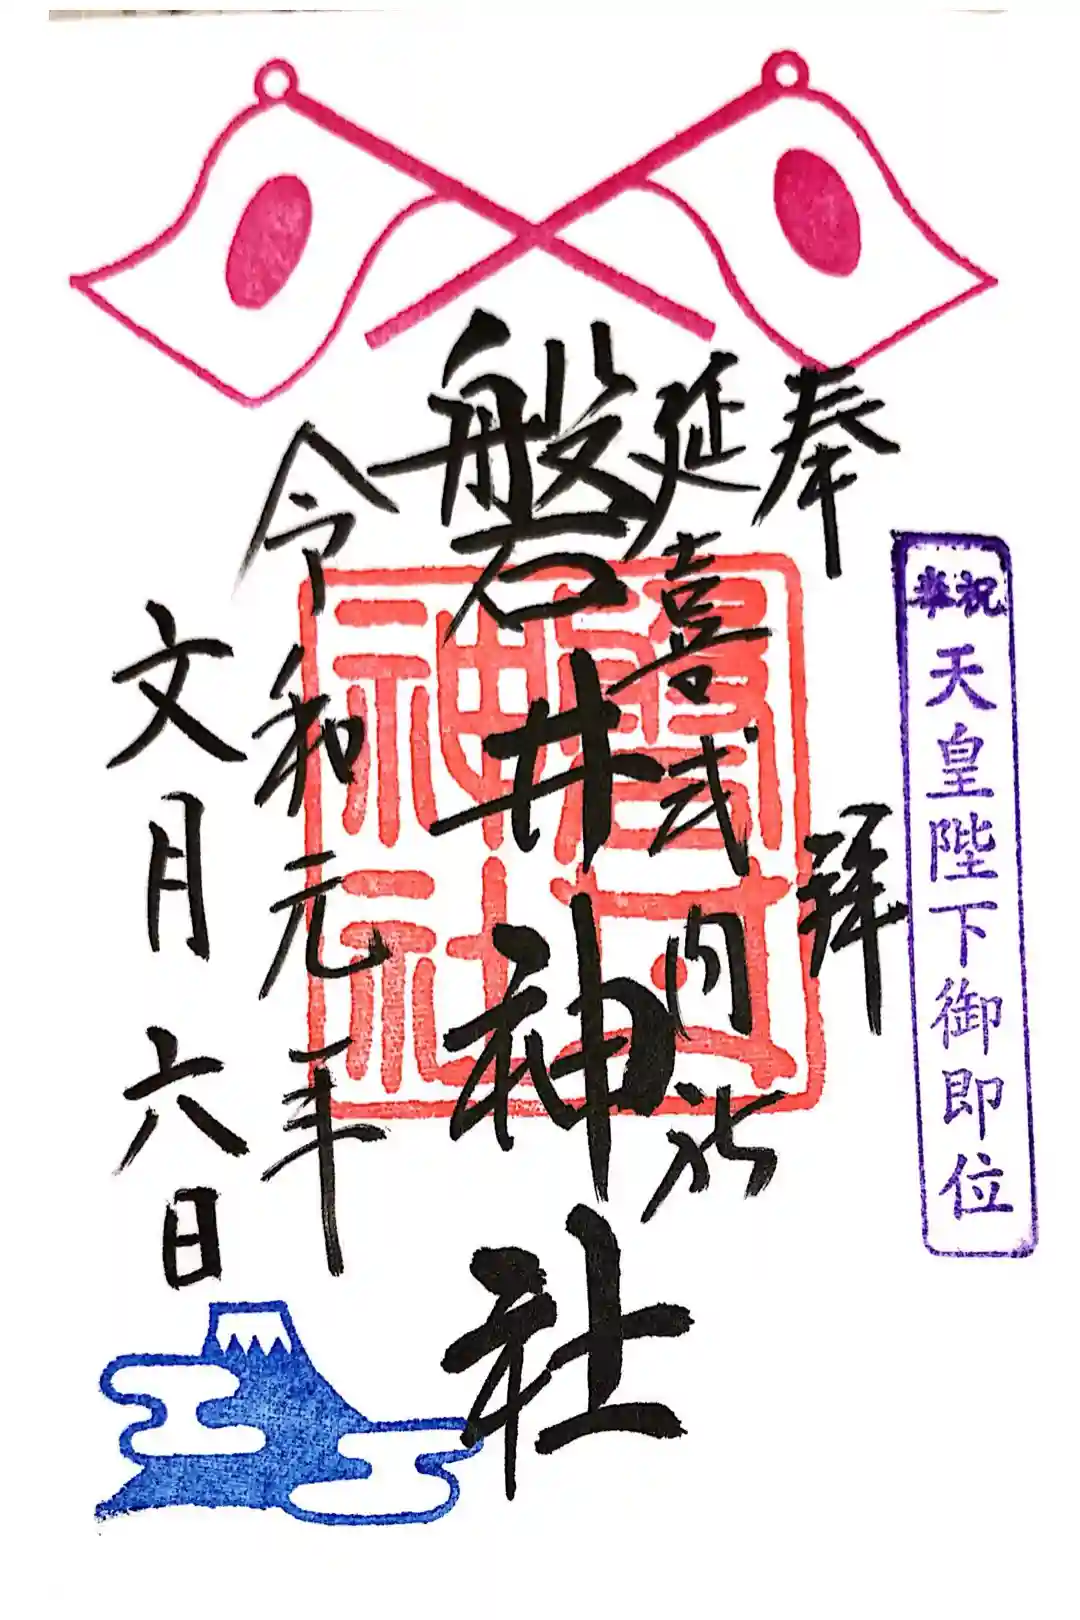 奉祝
天皇陛下御即位
奉拝
延喜式内社
磐井神社
令和元年
文月六日
磐井
神社